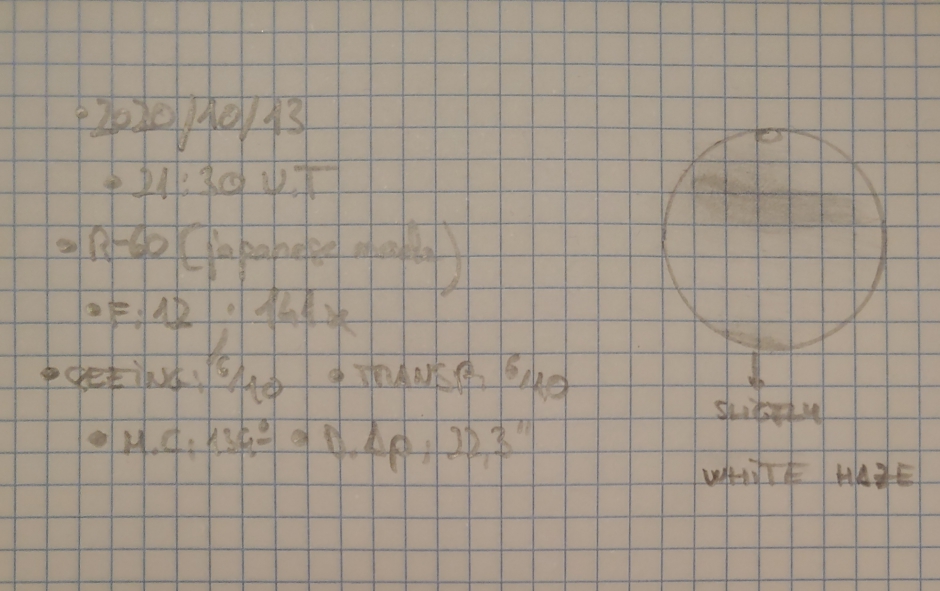 • 2020/10/13
• 21:30 U.T
• R-60 (japanese made)
• F:12 ; 144x
• SEEING: 6/10 • TRANSP: 6/10
• M.C: 139° • D.Ap: 22,3"
WHITE HAZE